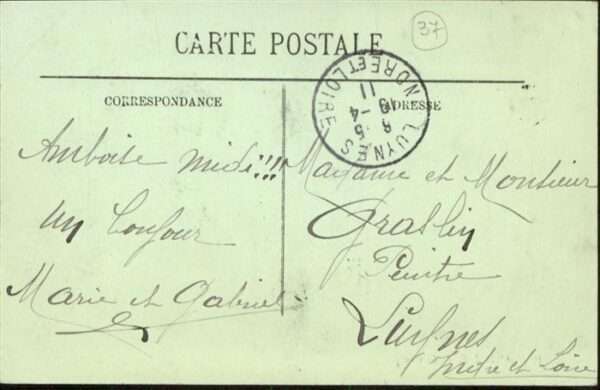 37
CARTE POSTALE
CORRESPONDANCE
ADRESSE
LUYNES
INDRE ET LOIRE
8 35
19 - 4
11
Amboise midi!!!
un bonjour
Marie et Gabriel
Madame et Monsieur
Graslin
Peintre
Luynes
Indre et Loire